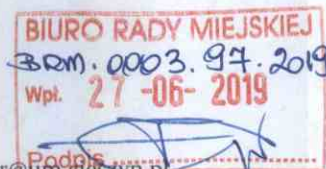 BIURO RADY MIEJSKIEJ
BRM.0003.97.2019
Wpł. 27 -06- 2019
Podpis